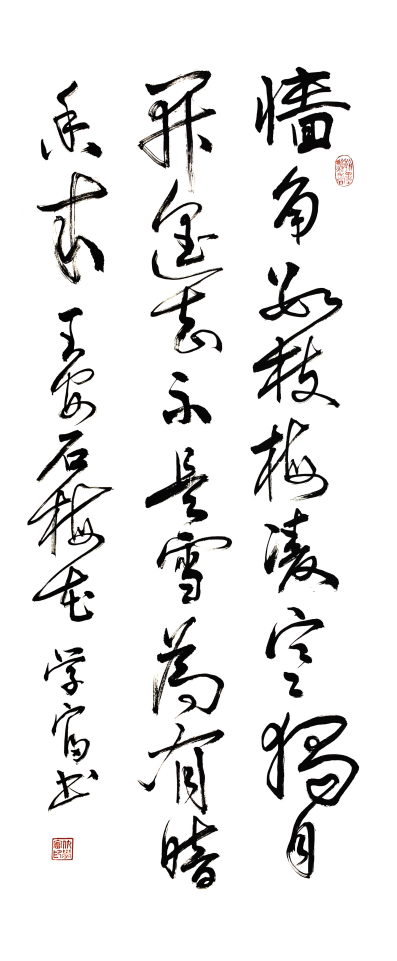 墙角数枝梅凌寒獨自
开遥知不是雪為有暗
香来 王安石梅花 学富书